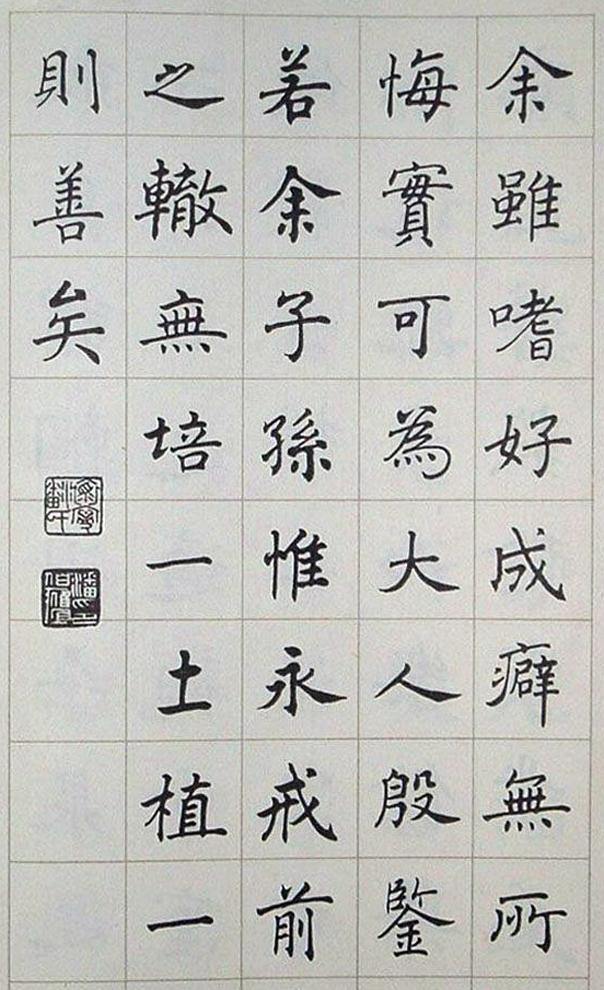 余雖嗜好成癖無所
悔實可為大人殷鑒
若余子孫惟永戒前
之轍無培一土植一
則善矣